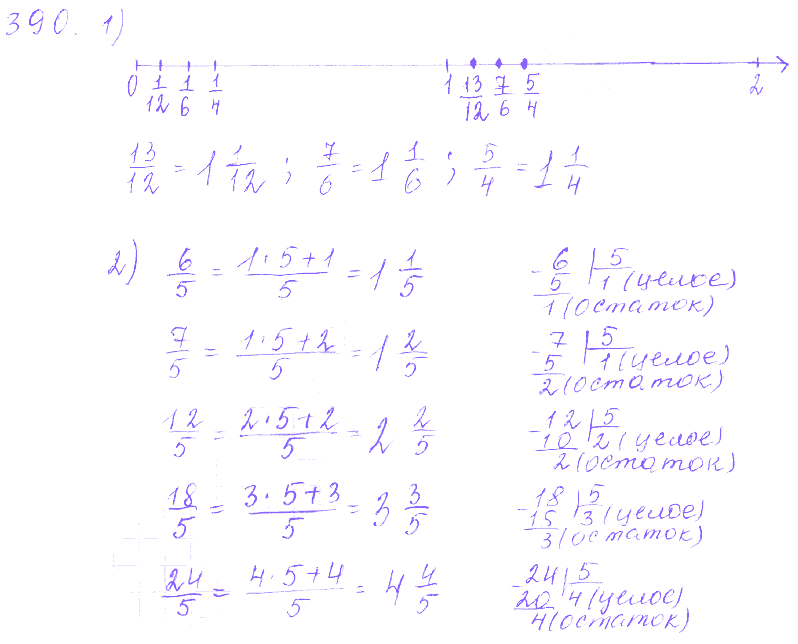 390. 1)
0 1/12 1/6 1/4 1 13/12 7/6 5/4 2
13/12 = 1 1/12 ; 7/6 = 1 1/6 ; 5/4 = 1 1/4
2) 6/5 = (1·5+1)/5 = 1 1/5
- 6 | 5
5 1 (целое)
1 (остаток)
7/5 = (1·5+2)/5 = 1 2/5
- 7 | 5
5 1 (целое)
2 (остаток)
12/5 = (2·5+2)/5 = 2 2/5
- 12 | 5
10 2 (целое)
2 (остаток)
18/5 = (3·5+3)/5 = 3 3/5
- 18 | 5
15 3 (целое)
3 (остаток)
24/5 = (4·5+4)/5 = 4 4/5
- 24 | 5
20 4 (целое)
4 (остаток)